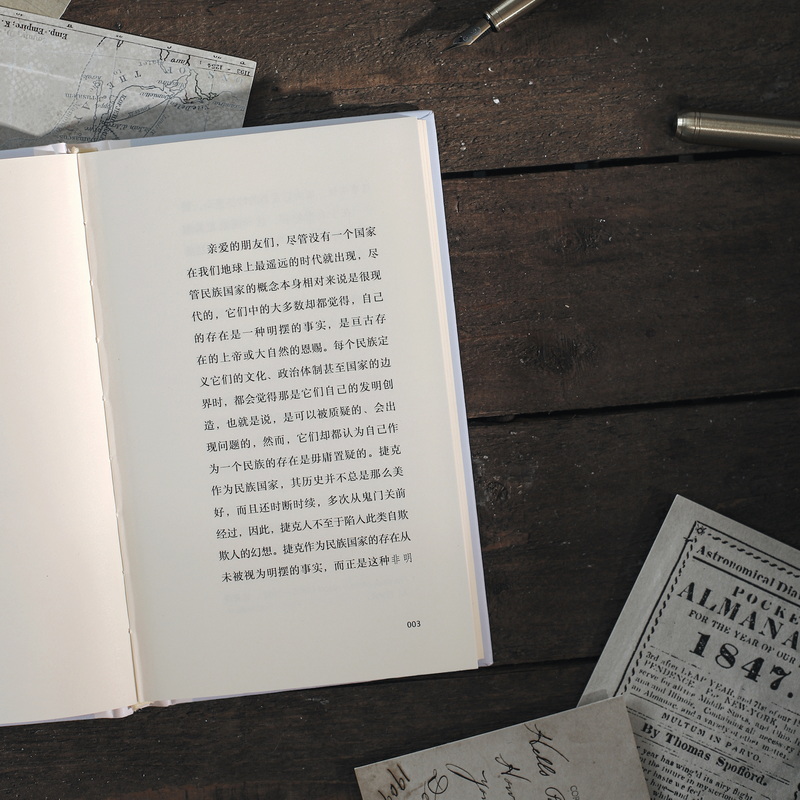 亲爱的朋友们，尽管没有一个国家
在我们地球上最遥远的时代就出现，尽
管民族国家的概念本身相对来说是很现
代的，它们中的大多数却都觉得，自己
的存在是一种明摆的事实，是亘古存
在的上帝或大自然的恩赐。每个民族定
义它们的文化、政治体制甚至国家的边
界时，都会觉得那是它们自己的发明创
造，也就是说，是可以被质疑的、会出
现问题的，然而，它们却都认为自己作
为一个民族的存在是毋庸置疑的。捷克
作为民族国家，其历史并不总是那么美
好，而且还时断时续，多次从鬼门关前
经过，因此，捷克人不至于陷入此类自欺
欺人的幻想。捷克作为民族国家的存在从
未被视为明摆的事实，而正是这种非明
003
Emp. Empire, K.
1254
1152
OF THE
Astronomical
POCKE
ALMANA
FOR THE YEAR OF OUR
1847.
3rd after LEAP YEAR,
PENDENCE
NEW-YORK
Middle States, and
and Illinois, Containing
an Almanac, and a variety of other
MULTUM IN PARVO.
By Thomas Spofford.
year has wing'd its airy flight
the future in mysterious
Hello
190